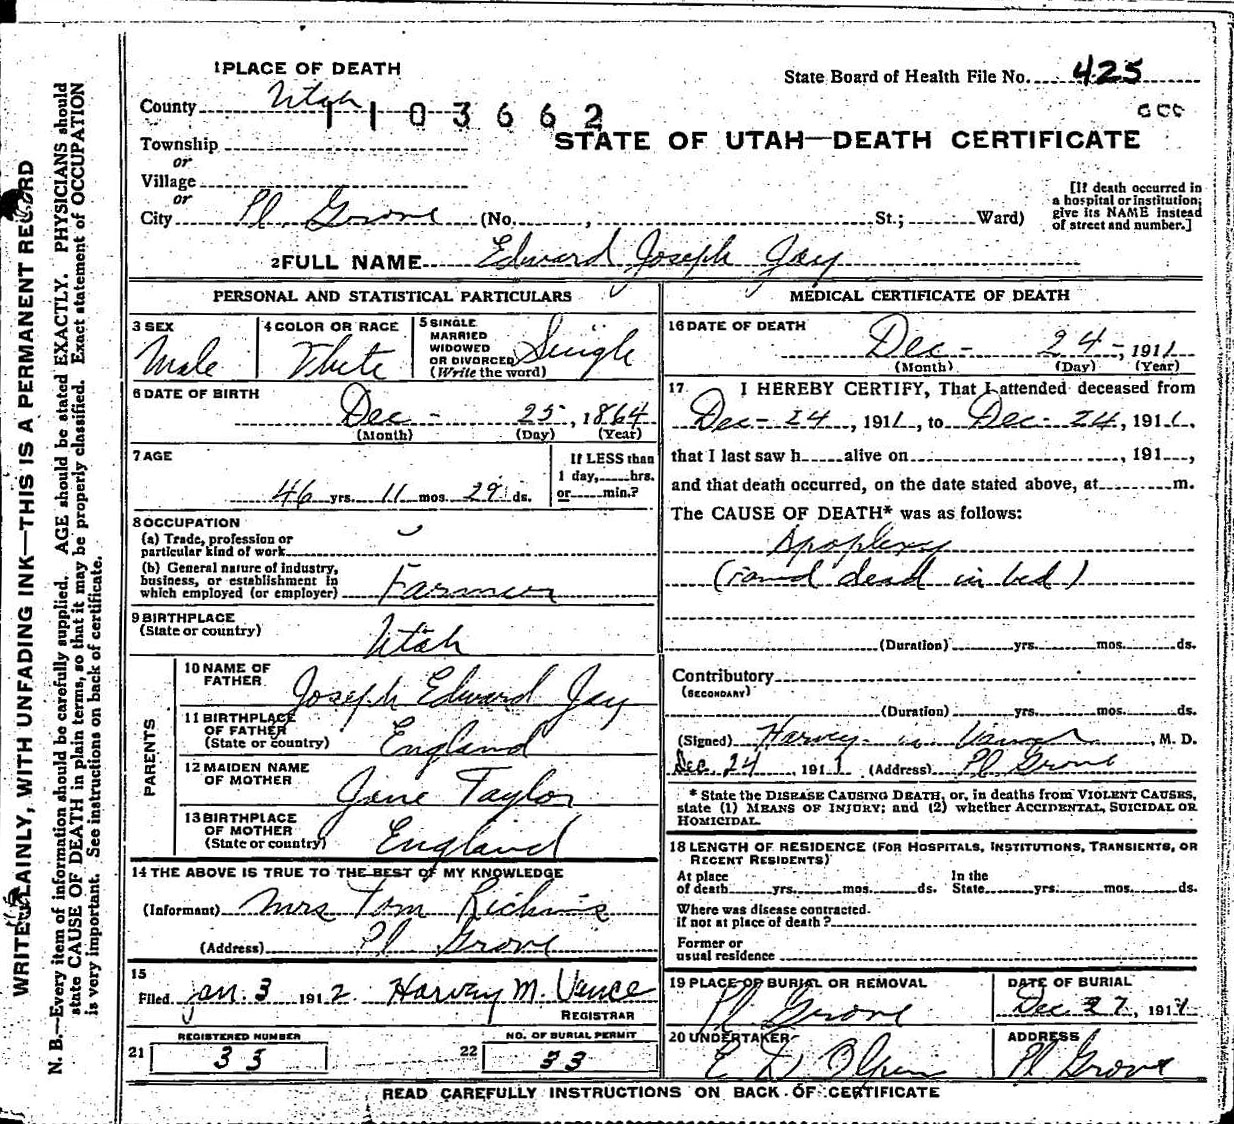 1 PLACE OF DEATH
State Board of Health File No. 425
County Utah
1103662
Township
or
STATE OF UTAH—DEATH CERTIFICATE
Village
or
City Pl. Grove (No. , St.; Ward)
[If death occurred in a hospital or institution, give its NAME instead of street and number.]
2 FULL NAME Edward Joseph Jay
PERSONAL AND STATISTICAL PARTICULARS
3 SEX
Male
4 COLOR OR RACE
White
5 SINGLE
MARRIED
WIDOWED
OR DIVORCED
(Write the word)
Single
6 DATE OF BIRTH
Dec - 25, 1864
(Month) (Day) (Year)
7 AGE
46 yrs. 11 mos. 29 ds.
If LESS than
1 day, hrs.
or min.?
8 OCCUPATION
(a) Trade, profession or
particular kind of work
(b) General nature of industry,
business, or establishment in
which employed (or employer) Farmer
9 BIRTHPLACE
(State or country)
Utah
PARENTS
10 NAME OF
FATHER
Joseph Edward Jay
11 BIRTHPLACE
OF FATHER
(State or country)
England
12 MAIDEN NAME
OF MOTHER
Jane Taylor
13 BIRTHPLACE
OF MOTHER
(State or country)
England
14 THE ABOVE IS TRUE TO THE BEST OF MY KNOWLEDGE
(Informant) Mrs Tom Richins
(Address) Pl Grove
15
Filed Jan. 3 1912. Harvey M. Vance
REGISTRAR
REGISTERED NUMBER
21 35
NO. OF BURIAL PERMIT
22 33
MEDICAL CERTIFICATE OF DEATH
16 DATE OF DEATH
Dec - 24 -, 1911
(Month) (Day) (Year)
17. I HEREBY CERTIFY, That I attended deceased from
Dec - 24, 1911, to Dec - 24, 1911,
that I last saw h alive on , 191 ,
and that death occurred, on the date stated above, at m.
The CAUSE OF DEATH* was as follows:
Apoplexy
(found dead in bed)
(Duration) yrs. mos. ds.
Contributory
(SECONDARY)
(Duration) yrs. mos. ds.
(Signed) Harvey M Vance, M. D.
Dec. 24, 1911 (Address) Pl Grove
* State the DISEASE CAUSING DEATH, or, in deaths from VIOLENT CAUSES,
state (1) MEANS OF INJURY; and (2) whether ACCIDENTAL, SUICIDAL OR
HOMICIDAL.
18 LENGTH OF RESIDENCE (FOR HOSPITALS, INSTITUTIONS, TRANSIENTS, OR
RECENT RESIDENTS)
At place In the
of death yrs. mos. ds. State yrs. mos. ds.
Where was disease contracted.
if not at place of death?
Former or
usual residence
19 PLACE OF BURIAL OR REMOVAL
Pl Grove
DATE OF BURIAL
Dec 27, 1911
20 UNDERTAKER
E D Olpin
ADDRESS
Pl Grove
READ CAREFULLY INSTRUCTIONS ON BACK OF CERTIFICATE
WRITE PLAINLY, WITH UNFADING INK—THIS IS A PERMANENT RECORD
N. B.—Every item of information should be carefully supplied. AGE should be stated EXACTLY. PHYSICIANS should
state CAUSE OF DEATH in plain terms, so that it may be properly classified. Exact statement of OCCUPATION
is very important. See instructions on back of certificate.